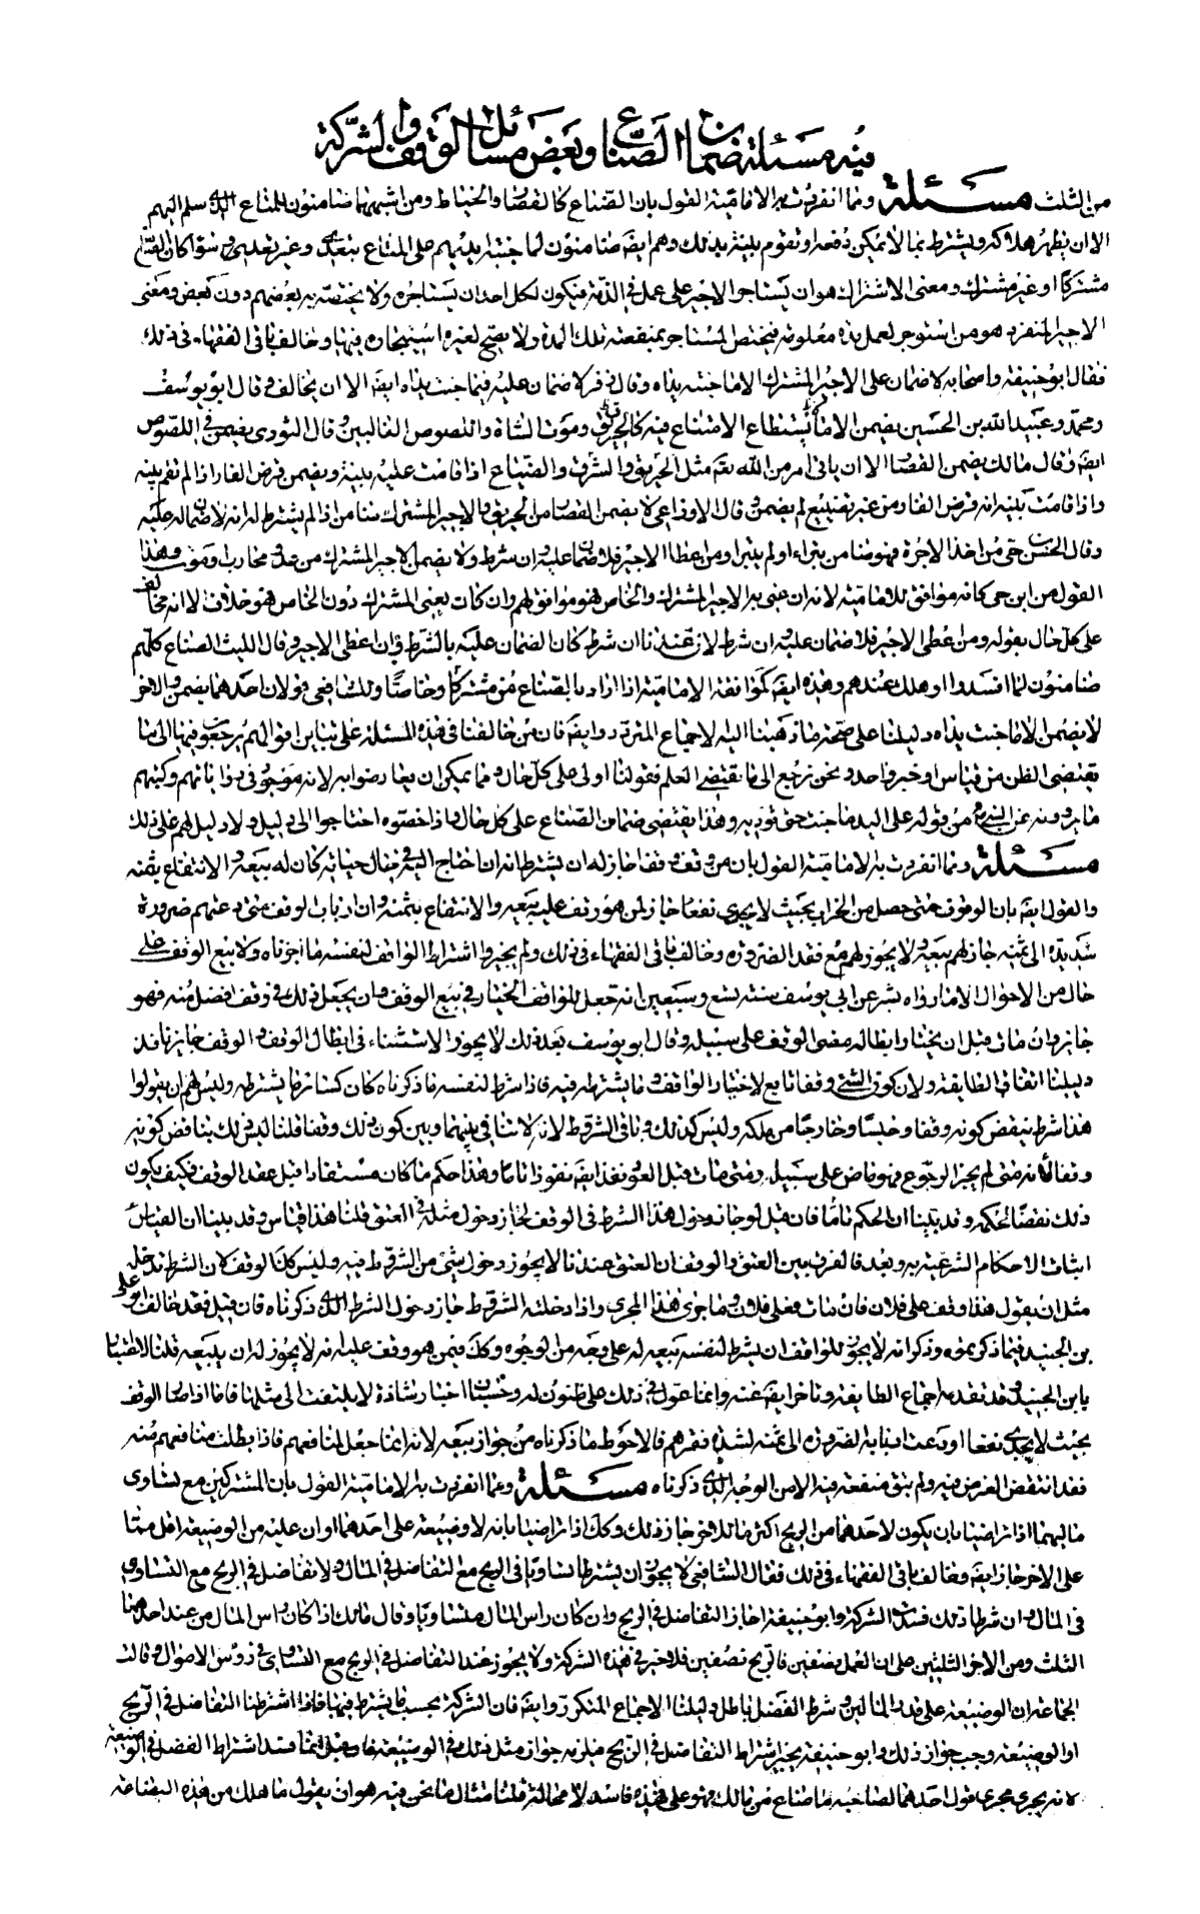 فيه مسئلة ضمان الصناع وبعض مسائل الوقف والشركة
من الثلث مسئلة ومما انفردت به الامامية القول بان الصناع كالقصار والخياط ومن اشبههما ضامنون للمتاع الذي سلم اليهم
الا ان يظهر هلاكه ويشتهر بما لا يمكن دفعه او تقوم بينة بذلك وهم ايضا ضامنون لما جنته ايديهم على المتاع بتعد وغير تعد وسواء كان الصانع
مشتركا او غير مشترك ومعنى الاشتراك هو ان يستاجر الاجير على عمل في الذمة فيكون لكل احد ان يستاجره ولا يختص به بعضهم دون بعض ومعنى
الاجير المنفرد هو من استوجر لعمل مدة معلومة فيختص المستاجر بمنفعته تلك المدة ولا يصح لغيره استيجاره فيها وخالف باقي الفقهاء في ذلك
فقال ابو حنيفة واصحابه لا ضمان على الاجير المشترك الا ما جنته يداه وقال زفر لا ضمان عليه فيما جنت يداه ايضا الا ان يخالف وقال ابو يوسف
ومحمد وعبيد الله بن الحسين يضمن الا ما لا يستطاع الامتناع منه كالحريق وموت الشاة واللصوص الغالبين وقال الثوري يضمن في اللصوص
ايضا وقال مالك يضمن القصار الا ان ياتي امر من الله تعالى مثل الحريق والسرق والضياع اذا قامت عليه بينة ويضمن قرض الفار اذا لم تقم بينة
واذا قامت بينة انه قرض الفار من غير تضييع لم يضمن وقال الاوزاعي لا يضمن القصار من الحريق والاجير المشترك ضامن اذا لم يشترط له انه لا ضمان عليه
وقال الحسن بن حي من اخذ الاجرة فهو ضامن تبراء او لم يتبرا ومن اعطا الاجر فلا ضمان عليه وان شرط ولا يضمن الاجير المشترك من عدو محارب او موت وهذا
القول من ابن حي كانه موافق للامامية لانه ان عنى به الاجير المشترك والخاص فهو موافق لهم وان كان يعنى المشترك دون الخاص فهو خلاف الا انه مخالف
على كل حال بقوله ومن اعطى الاجر فلا ضمان عليه وان شرط لان عندنا ان شرط كان الضمان عليه بالشرط وان اعطى الاجر وقال الليث الصناع كلهم
ضامنون لما افسدوا او هلك عندهم وهذه ايضا كموافقة الامامية اذا اراد بالصناع من مشتركا وخاصا وللشافعي قولان احدهما يضمن والاخر
لا يضمن الا ما جنت يداه دليلنا على صحة ما ذهبنا اليه الاجماع المتردد وايضا فان من خالفنا في هذه المسئلة على تباين اقوالهم يرجعون فيها الى ما
يقتضي الظن من قياس او خبر واحد ونحن نرجع الى ما يقتضي العلم فقولنا اولى على كل حال ومما يمكن ان يعارضوا به لانه موجود في رواياتهم وكتبهم
ما يروونه عن النبي من قوله على اليد ما جنت حتى تؤديه وهذا يقتضي ضمان الصناع على كل حال واذا خصوه احتاجوا الى دليل ولا دليل لهم على ذلك
مسئلة ومما انفردت به الامامية القول بان من وقف وقفا جاز له ان يشترط انه ان احتاج اليه في حال حياته كان له بيعه والانتفاع بثمنه
والقول ايضا بان الوقف متى حصل من الخراب بحيث لا يجدي نفعا جاز لمن هو وقف عليه بيعه والانتفاع بثمنه وان ارباب الوقف متى دعتهم ضرورة
شديدة الى ثمنه جاز لهم بيعه ولا يجوز لهم مع فقد الضرورة وخالف باقي الفقهاء في ذلك ولم يجيزوا اشتراط الواقف لنفسه ما اجزناه ولا بيع الوقف على
حال من الاحوال الا ما رواه بشر عن ابي يوسف سنة تسع وسبعين انه جعل للواقف الخيار في بيع الوقف وان يجعل ذلك في وقف افضل منه فهو
جايز وان مات قبل ان يختار ابطاله مضى الوقف على سبيله وقال ابو يوسف بعد ذلك لا يجوز الاستثناء في ابطال الوقف والوقف جايز نافذ
دليلنا اتفاق الطايفة ولان كون الشئ وقفا تابع لاختيار الواقف وما يشترطه فيه فاذا شرط لنفسه ما ذكرناه كان كسائر ما يشترطه وليس لهم ان يقولوا
هذا شرط ينقض كونه وقفا وحبسا وخارجا من ملكه وليس كذلك باقي الشروط لانه لا تنافي بينها وبين كون ذلك وقفا قلنا ليس ذلك يناقض كونه
وقفا لانه متى لم يختر الرجوع فهو ماض على سبيله ومتى مات قبل العود نفذ ايضا نفوذا تاما وهذا حكم ما كان مستفادا قبل عقد الوقف فكيف يكون
ذلك نقضا لحكمه وقد بينا ان الحكم تام فان قيل لو جاز دخول هذا الشرط في الوقف لجاز دخول مثله في العتق قلنا هذا قياس وقد بينا ان القياس
اثبات الاحكام الشرعية به وبعد فالفرق بين العتق والوقف ان العتق عندنا لا يجوز دخول شئ من الشروط فيه وليس كذلك الوقف لان الشرط تدخله
مثل ان يقول هذا وقف على فلان فان مات فعلى فلان وما جرى هذا المجرى واذا دخلته الشروط جاز دخول الشرط الذي ذكرناه فان قيل فقد خالف ابو علي
بن الجنيد فيما ذكرتموه وذكر انه لا يجوز للواقف ان يشرط لنفسه بيعه له على وجه من الوجوه وكذلك فيمن هو وقف عليه انه لا يجوز له ان يبيعه قلنا لا اعتبار
بابن الجنيد وقد تقدمه اجماع الطايفة وتاخر ايضا عنه وانما عول في ذلك على ظنون له وحسبان واخبار شاذة لا يلتفت الى مثلها فاما اذا صار الوقف
بحيث لا يجدي نفعا او دعت اربابه الضرورة الى ثمنه لشدة فقرهم فالاحوط ما ذكرناه من جواز بيعه لانه انما جعل لمنافعهم فاذا بطلت منافعهم منه
فقد انتقض الغرض فيه ولم يبق منفعة فيه الا من الوجه الذي ذكرناه مسئلة ومما انفردت به الامامية القول بان المشتركين مع تساوي
ماليهما اذا تراضيا بان يكون لاحدهما من الربح اكثر مما للاخر جاز ذلك وكذلك اذا تراضيا بانه لا وضيعة على احدهما او ان عليه من الوضيعة اقل مما
على الاخر جاز ايضا وخالف باقي الفقهاء في ذلك فقال الشافعي لا يجوز ان يشترطا تساويا في الربح مع التفاضل في المال ولا تفاضل في الربح مع التساوي
في المال وان شرطا ذلك فسدت الشركة وابو حنيفة اجاز التفاضل في الربح وان كان راس المال متساويا وقال مالك اذا كان راس المال من عند احدهما
الثلث ومن الاخر الثلثين على ان العمل نصفين فالربح نصفين فلا خير في هذه الشركة ولا يجوز عنده التفاضل في الربح مع التساوي في رؤس الاموال وقالت
الجماعة ان الوضيعة على قدر المالين وشرط الفضل باطل دليلنا الاجماع المتكرر وايضا فان الشركة بحسب ما يشترط فيها فاذا اشترطنا التفاضل في الربح
او الوضيعة وجب جواز ذلك وابو حنيفة يجيز اشتراط التفاضل في الربح فيلزمه جواز مثل ذلك في الوضيعة فان قيل انما فسد اشتراط الفضل في الوضيعة
لانه يجري مجرى قول احدهما لصاحبه ما ضاع من مالك فهو علي فهذه فاسد لا محالة قلنا مثال ما نحن فيه هو ان يقول ما هلك من هذه البضاعة